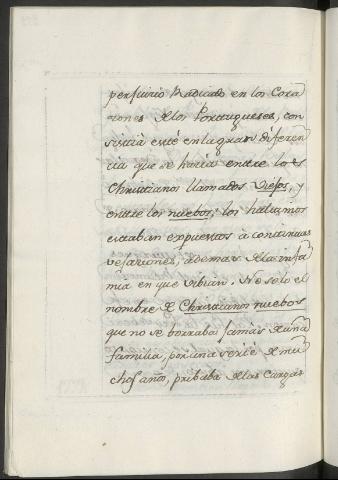 perjuirio Radicado en los Cora
zones de los Portugueses, con
sistia este en la gran diferen
cia que se hacia entre los
Christianos llamados Viejos, y
entre los nuebos; los ultimos
estaban expuestos à continuas
vejaziones, ademas de la infa
mia en que vibian. No solo el
nombre de Christianos nuebos
que no se borraba jamàs de una
familia, por una serie de mu
chos años, pribaba de las Cargas